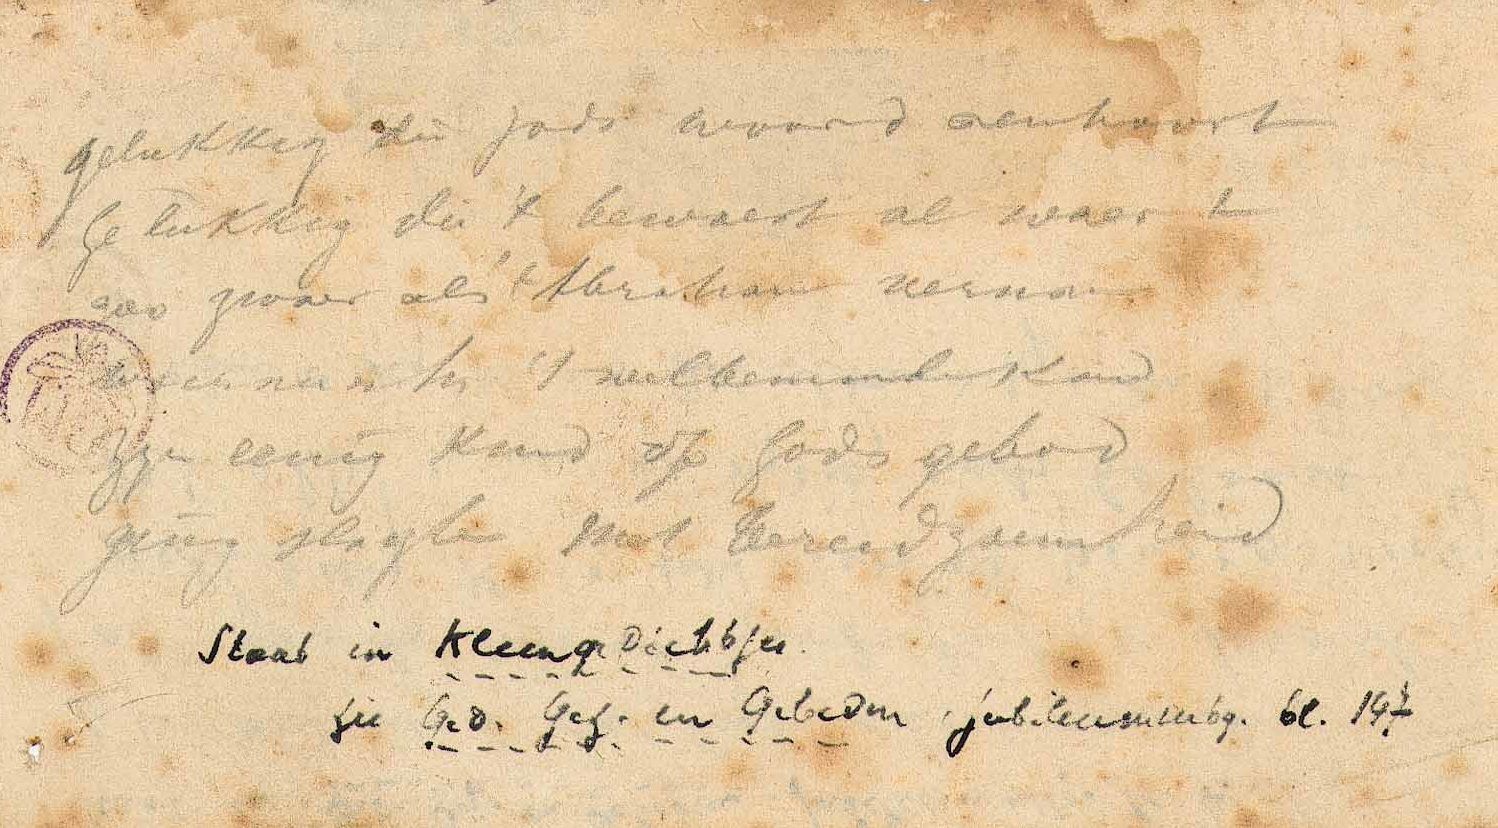 gelukkig die gods woord aenhoort
gelukkig die 't bewaert al waer 't
zoo zwaer als 't Abraham vernam
wanneer hy 't welbeminde kind
zyn eenig kind op Gods gebod
ging slagten met bereidzaemheid
Staat in Kleengedichtjes.
zie Ged. Gez. en Gebeden jubileumuitg. bl. 197